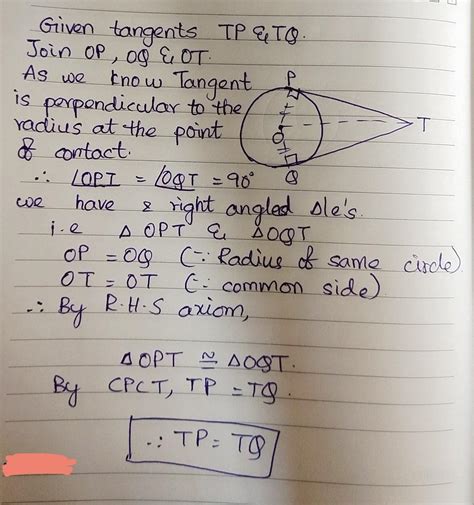 Given tangents TP & TQ.
Join OP, OQ & OT.
As we know Tangent
is perpendicular to the
radius at the point
of contact.
P
O
T
Q
∴ ∠OPT = ∠OQT = 90°
we have 2 right angled Δle's.
i.e Δ OPT & ΔOQT
OP = OQ (∵ Radius of same circle)
OT = OT (∵ common side)
∴ By R.H.S axiom,
ΔOPT ≅ ΔOQT.
By CPCT, TP = TQ.
∴ TP = TQ